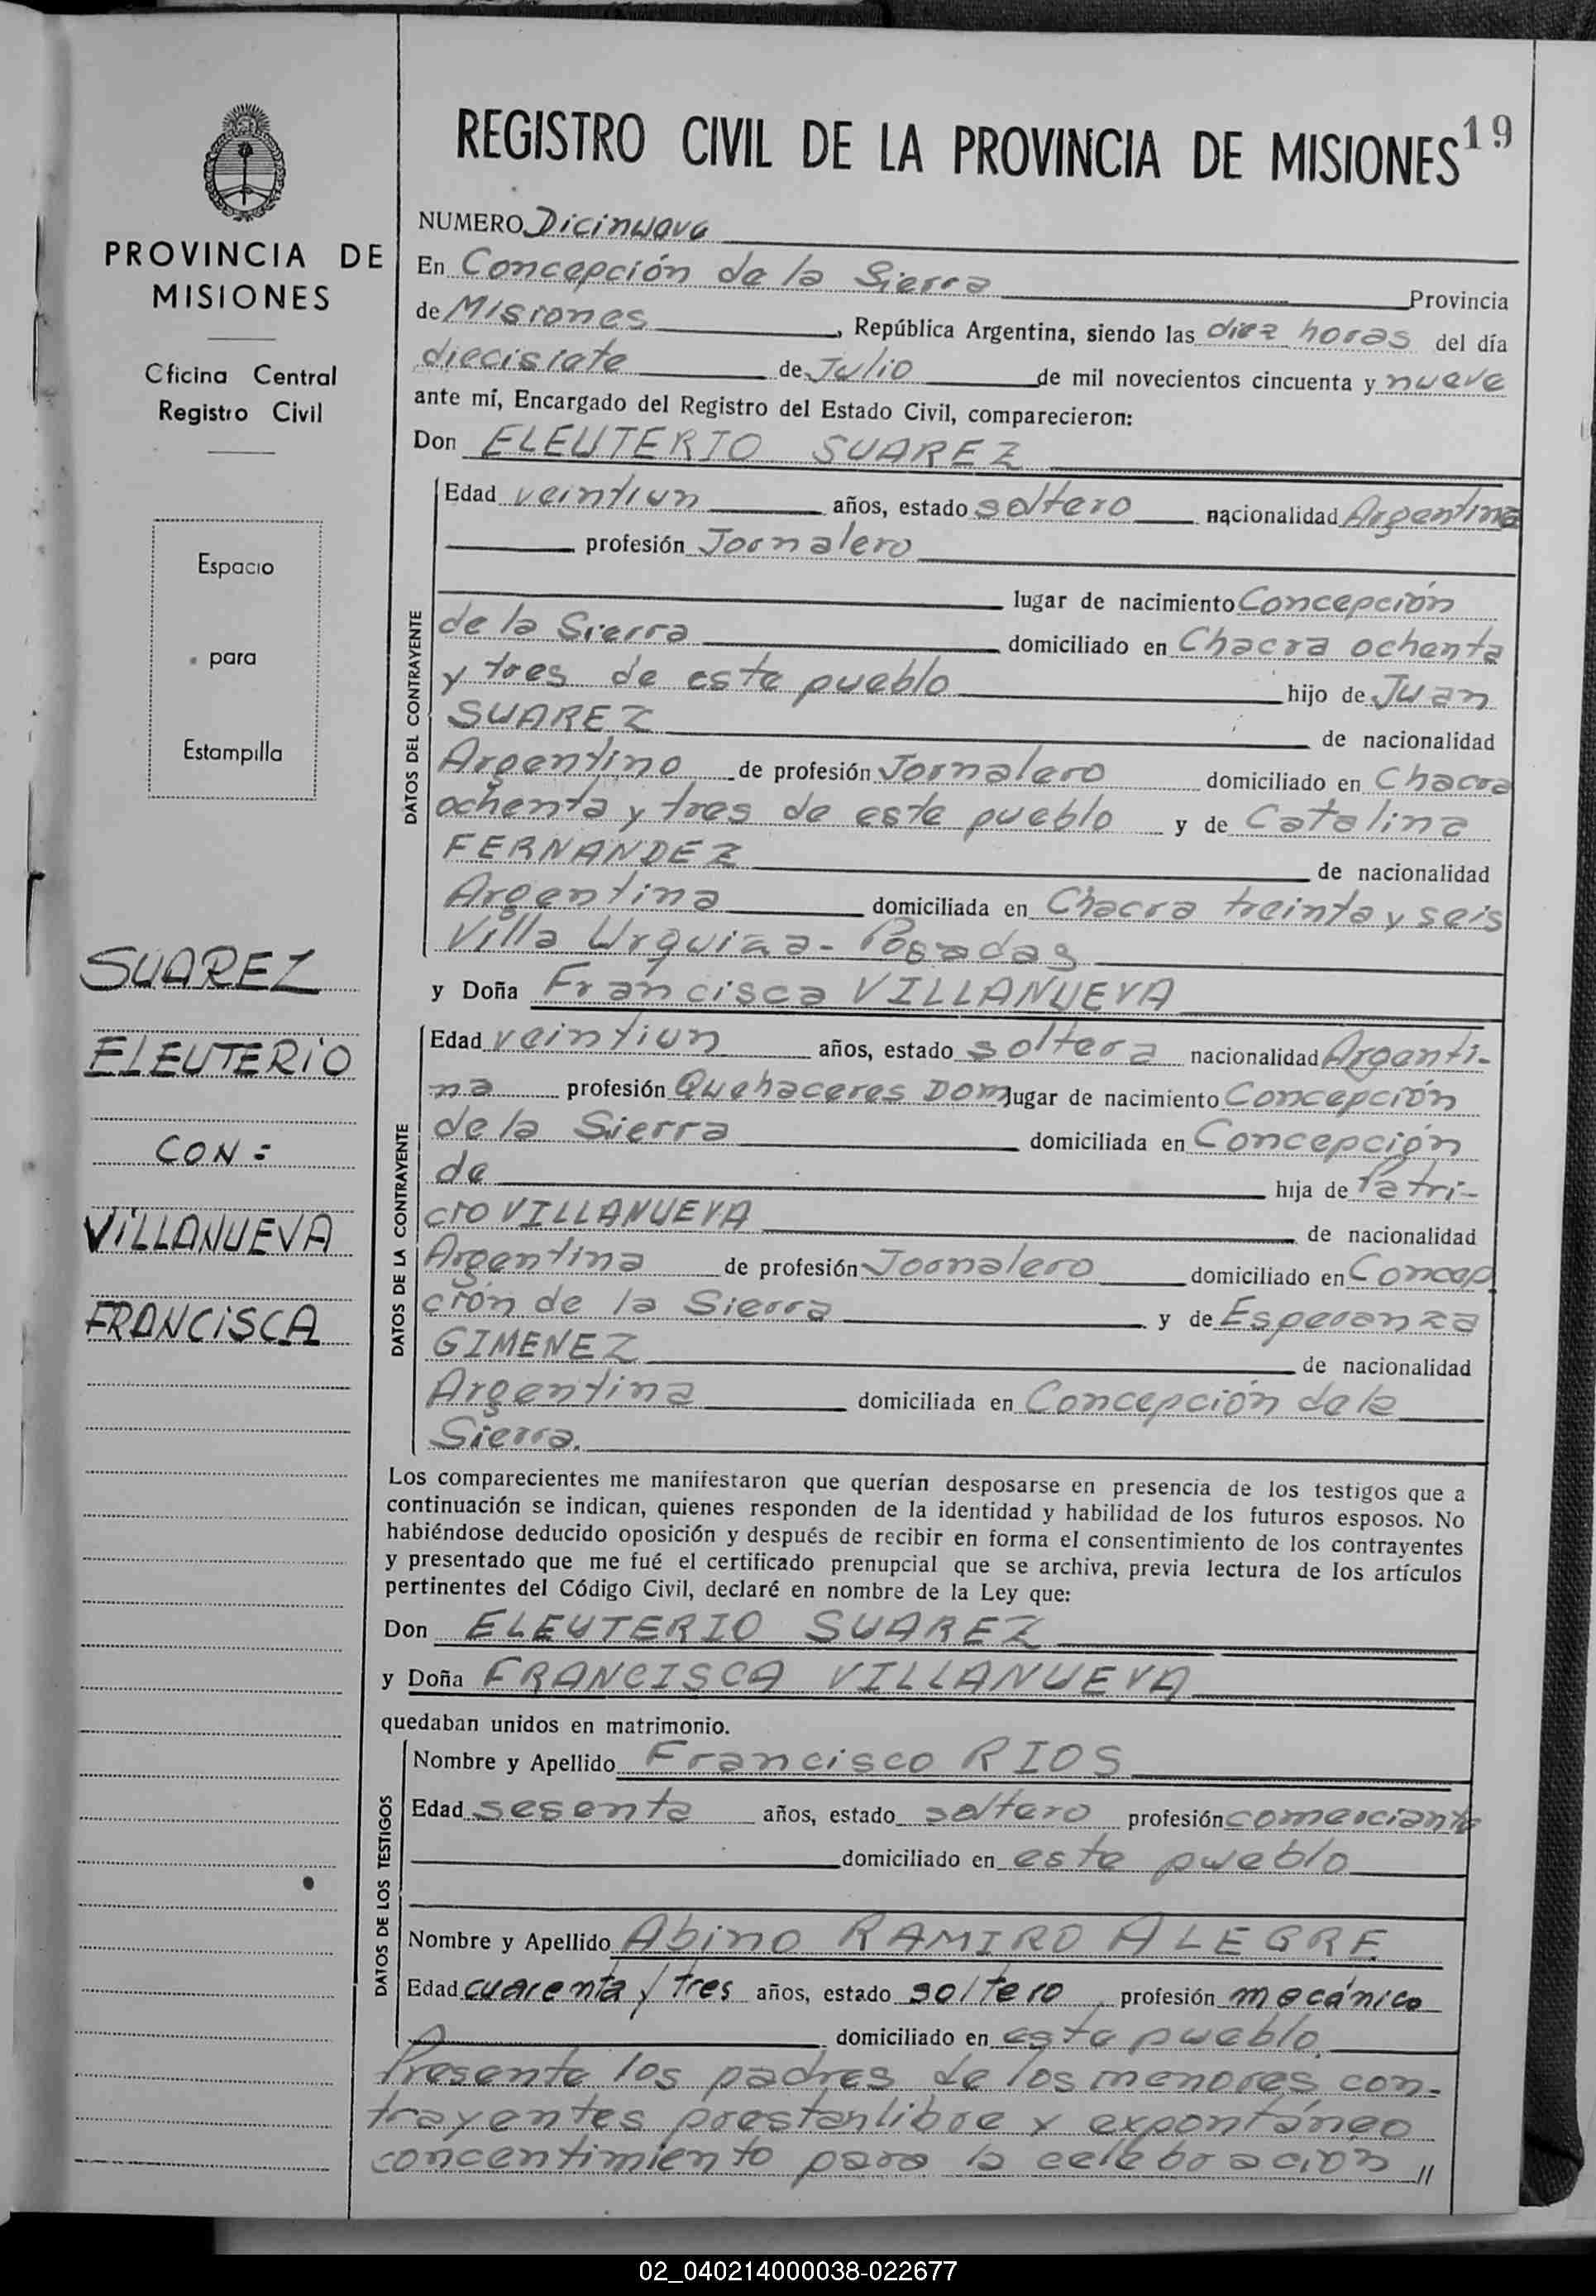 PROVINCIA DE
MISIONES
Oficina Central
Registro Civil
Espacio
para
Estampilla
SUAREZ
ELEUTERIO
CON =
VILLANUEVA
FRANCISCA
REGISTRO CIVIL DE LA PROVINCIA DE MISIONES 19
NUMERO Dicinuava
En Concepción de la Sierra Provincia
de Misiones, República Argentina, siendo las diez horas del día
diecisiete de Julio de mil novecientos cincuenta y nueve
ante mí, Encargado del Registro del Estado Civil, comparecieron:
Don ELEUTERIO SUAREZ
DATOS DEL CONTRAYENTE
Edad veintiun años, estado soltero nacionalidad Argentina
profesión Jornalero
lugar de nacimiento Concepción
de la Sierra domiciliado en Chacra ochenta
y tres de este pueblo hijo de Juan
SUAREZ de nacionalidad
Argentino de profesión Jornalero domiciliado en Chacra
ochenta y tres de este pueblo y de Catalina
FERNANDEZ de nacionalidad
Argentina domiciliada en Chacra treinta y seis
Villa Urquiza - Posadas
y Doña Francisca VILLANUEVA
DATOS DE LA CONTRAYENTE
Edad veintiun años, estado soltera nacionalidad Argenti-
na profesión Quehaceres Dom lugar de nacimiento Concepción
de la Sierra domiciliada en Concepción
de hija de Patri-
cio VILLANUEVA de nacionalidad
Argentina de profesión Jornalero domiciliado en Concep
ción de la Sierra y de Esperanza
GIMENEZ de nacionalidad
Argentina domiciliada en Concepción de la
Sierra.
Los comparecientes me manifestaron que querían desposarse en presencia de los testigos que a
continuación se indican, quienes responden de la identidad y habilidad de los futuros esposos. No
habiéndose deducido oposición y después de recibir en forma el consentimiento de los contrayentes
y presentado que me fué el certificado prenupcial que se archiva, previa lectura de los artículos
pertinentes del Código Civil, declaré en nombre de la Ley que:
Don ELEUTERIO SUAREZ
y Doña FRANCISCA VILLANUEVA
quedaban unidos en matrimonio.
DATOS DE LOS TESTIGOS
Nombre y Apellido Francisco RIOS
Edad sesenta años, estado soltero profesión comerciante
domiciliado en este pueblo
Nombre y Apellido Abino RAMIRO ALEGRE
Edad cuarenta y tres años, estado soltero, profesión mecánico
domiciliado en este pueblo.
Presente los padres de los menores con-
trayentes prestan libre y expontáneo
concentimiento para la celebración //
02_040214000038-022677